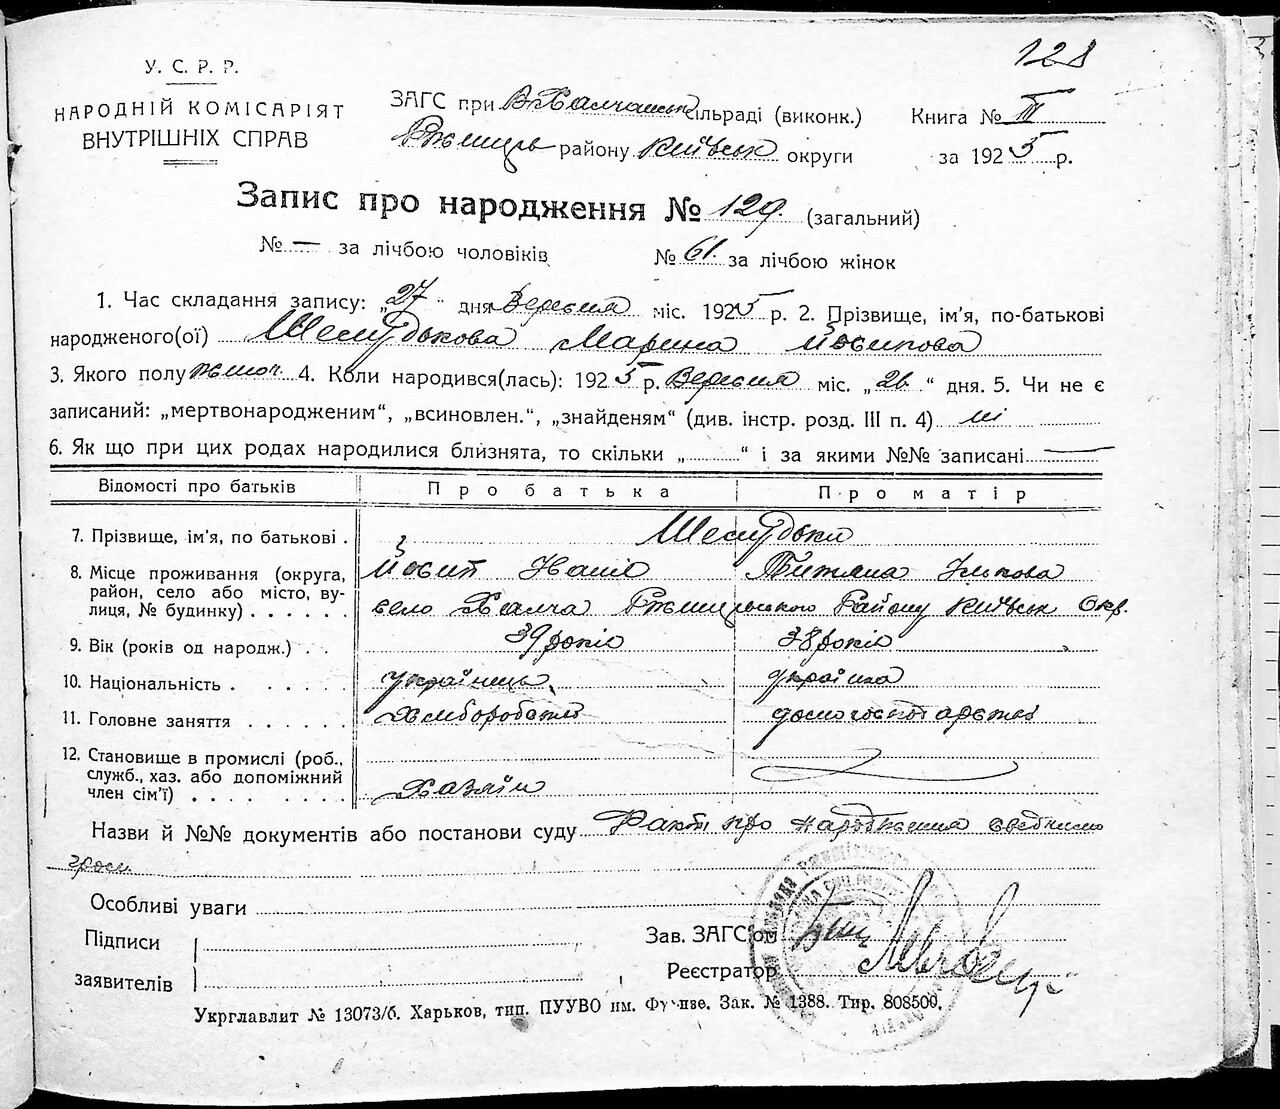 128
У. С. Р. Р.
НАРОДНІЙ КОМІСАРІЯТ
ВНУТРІШНІХ СПРАВ
ЗАГС при В-Халчанськ сільраді (виконк.)
району Київськ округи
Книга № III
за 1925 р.
Запис про народження № 129. (загальний)
№ — за лічбою чоловіків № 61. за лічбою жінок
1. Час складання запису: „27" дня Вересня міс. 1925 р. 2. Прізвище, ім'я, по-батькові
народженого(ої) Марина Йосипова
3. Якого полу жіноч. 4. Коли народився(лась): 1925 р. Вересня міс. „26" дня. 5. Чи не є
записаний: „мертвонародженим", „всиновлен.", „знайденям" (див. інстр. розд. III п. 4) ні
6. Як що при цих родах народилися близнята, то скільки „ " і за якими №№ записані —
Відомості про батьків Про батька Про матір
7. Прізвище, ім'я, по батькові .
Йосип Іванів Титяна Ількова
8. Місце проживання (округа, район, село або місто, вулиця, № будинку) . . . . .
село Халча Ржищівського Району Київськ Окр.
9. Вік (років од народж.) . . 39 років 38 років
10. Національність . . . . . . українець українка
11. Головне заняття . . . . . . Хлібороботи
12. Становище в промислі (роб., служб., хаз. або допоміжний член сім'ї) . . . . . . . . Хазяїн
Назви й №№ документів або постанови суду Факт про народження
Особливі уваги
Підписи
заявителів
Зав. ЗАГС'ом
Реєстратор
Укрглавлит № 13073/б. Харьков, тип. ПУУВО им. Фрунзе. Зак. № 1388. Тир. 808500.